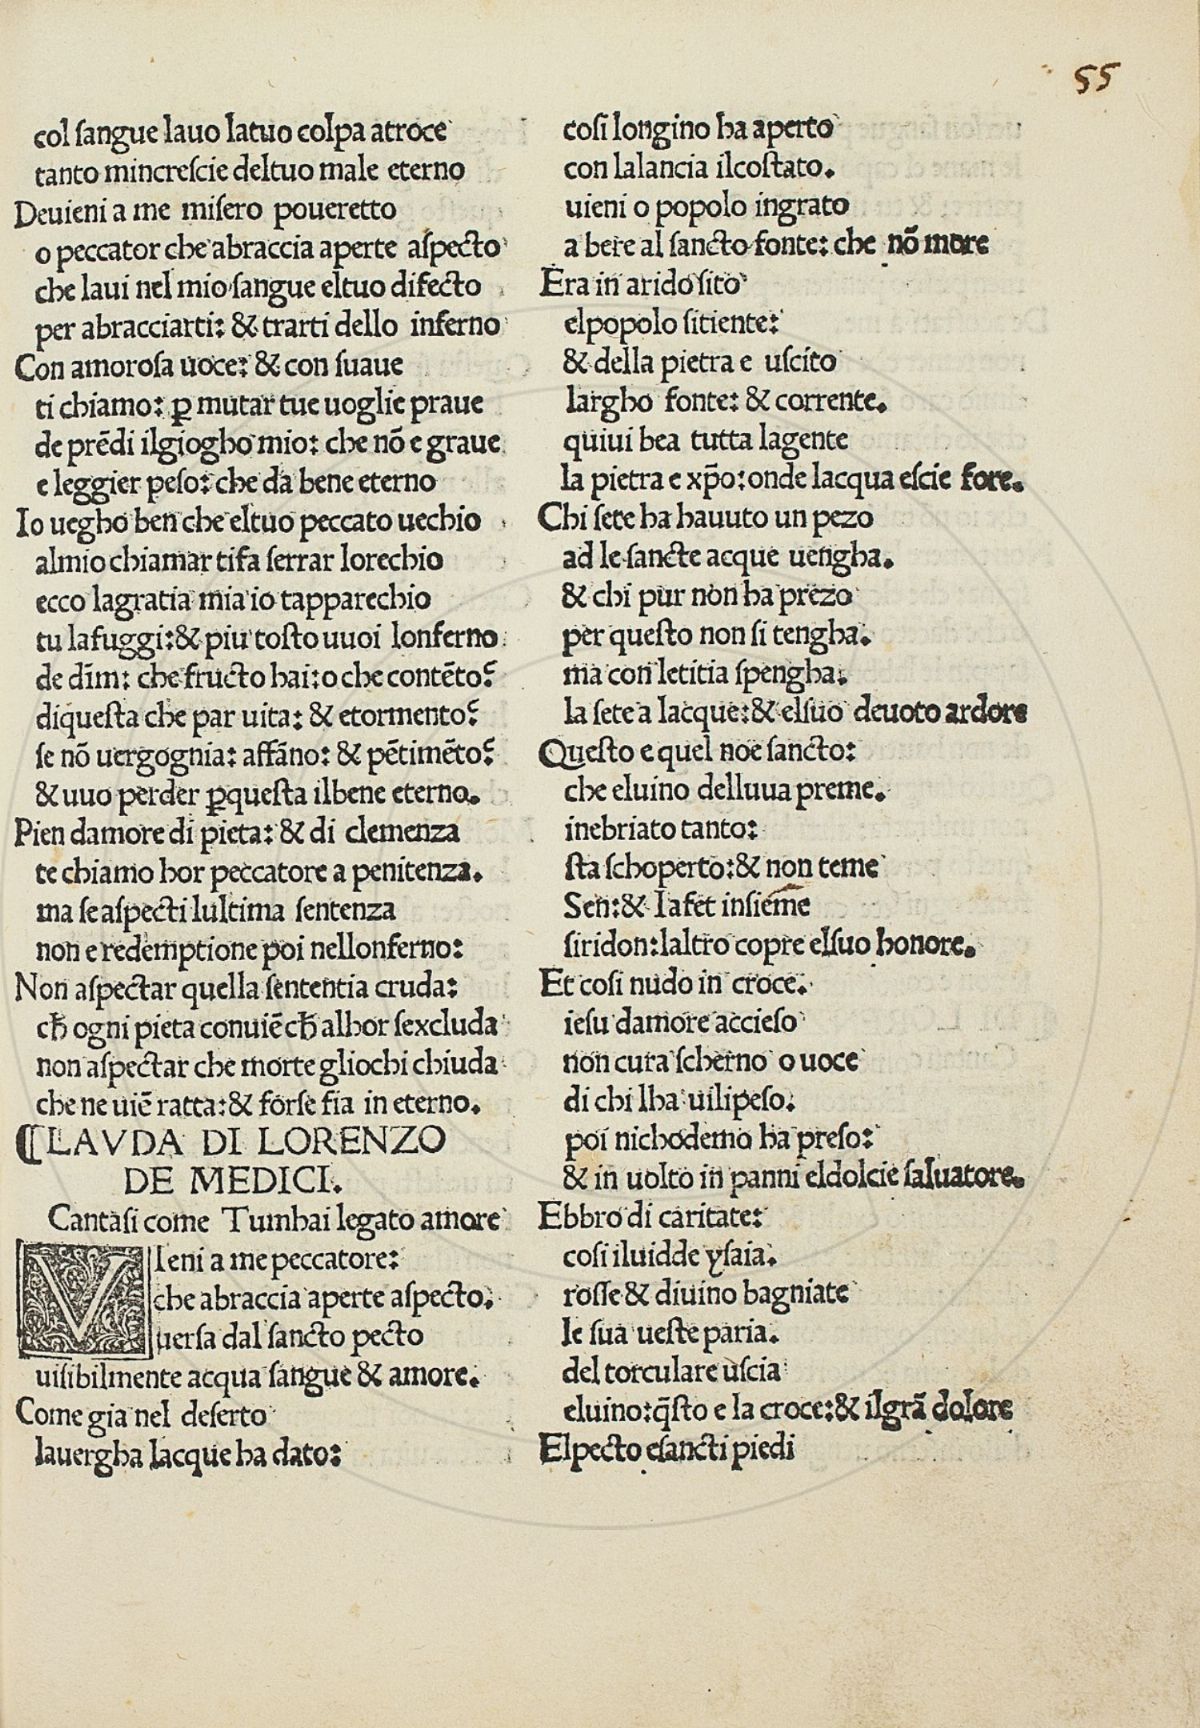 55
col ſangue lauo latuo colpa atroce
tanto mincreſcie deltuo male eterno
Deuieni a me miſero poueretto
o peccator che abraccia aperte aſpecto
che laui nel mio ſangue eltuo difecto
per abracciarti: & trarti dello inferno
Con amoroſa uoce: & con ſuaue
ti chiamo: ꝑ mutar tue uoglie praue
de prēdi ilgiogho mio: che nō e graue
e leggier peſo: che da bene eterno
Io uegho ben che eltuo peccato uechio
almio chiamar tifa ſerrar lorechio
ecco lagratia mia io tapparechio
tu lafuggi: & piu toſto uuoi lonferno
de dīm: che fructo hai: o che contēto?
diqueſta che par uita: & etormento?
ſe nō uergognia: affāno: & pētimēto?
& uuo perder ꝑqueſta ilbene eterno.
Pien damore di pieta: & di clemenza
te chiamo hor peccatore a penitenza.
ma ſe aſpecti lultima ſentenza
non e redemptione poi nellonferno:
Non aſpectar quella ſententia cruda:
cħ ogni pieta conuiē cħ alhor ſexcluda
non aſpectar che morte gliochi chiuda
che ne uiē ratta: & forſe fia in eterno.
⁋LAVDA DI LORENZO
DE MEDICI.
Cantaſi come Tumhai legato amore
VIeni a me peccatore:
che abraccia aperte aſpecto.
uerſa dal ſancto pecto
uiſibilmente acqua ſangue & amore.
Come gia nel deſerto
lauergha lacque ha dato:
coſi longino ha aperto
con lalancia ilcoſtato.
uieni o popolo ingrato
a bere al ſancto fonte: che nō more
Era in arido ſito
elpopolo ſitiente:
& della pietra e uſcito
largho fonte: & corrente.
quiui bea tutta lagente
la pietra e xp̄o: onde lacqua eſcie fore.
Chi ſete ha hauuto un pezo
ad le ſancte acque uengha.
& chi pur non ha prezo
per queſto non ſi tengha.
ma con letitia ſpengha:
la ſete a lacque: & elſuo deuoto ardore
Queſto e quel noe ſancto:
che eluino delluua preme.
inebriato tanto:
ſta ſchoperto: & non teme
Sen: & Iafet inſieme
ſiridon: laltro copre elſuo honore.
Et coſi nudo in croce.
ieſu damore accieſo
non cura ſcherno o uoce
di chi lha uilipeſo.
poi nichodemo ha preſo:
& in uolto in panni eldolcie ſaluatore.
Ebbro di caritate:
coſi iluidde yſaia.
roſſe & diuino bagniate
le ſua ueſte paria.
del torculare uſcia
eluino: q̄ſto e la croce: & ilgrā dolore
Elpecto eſancti piedi